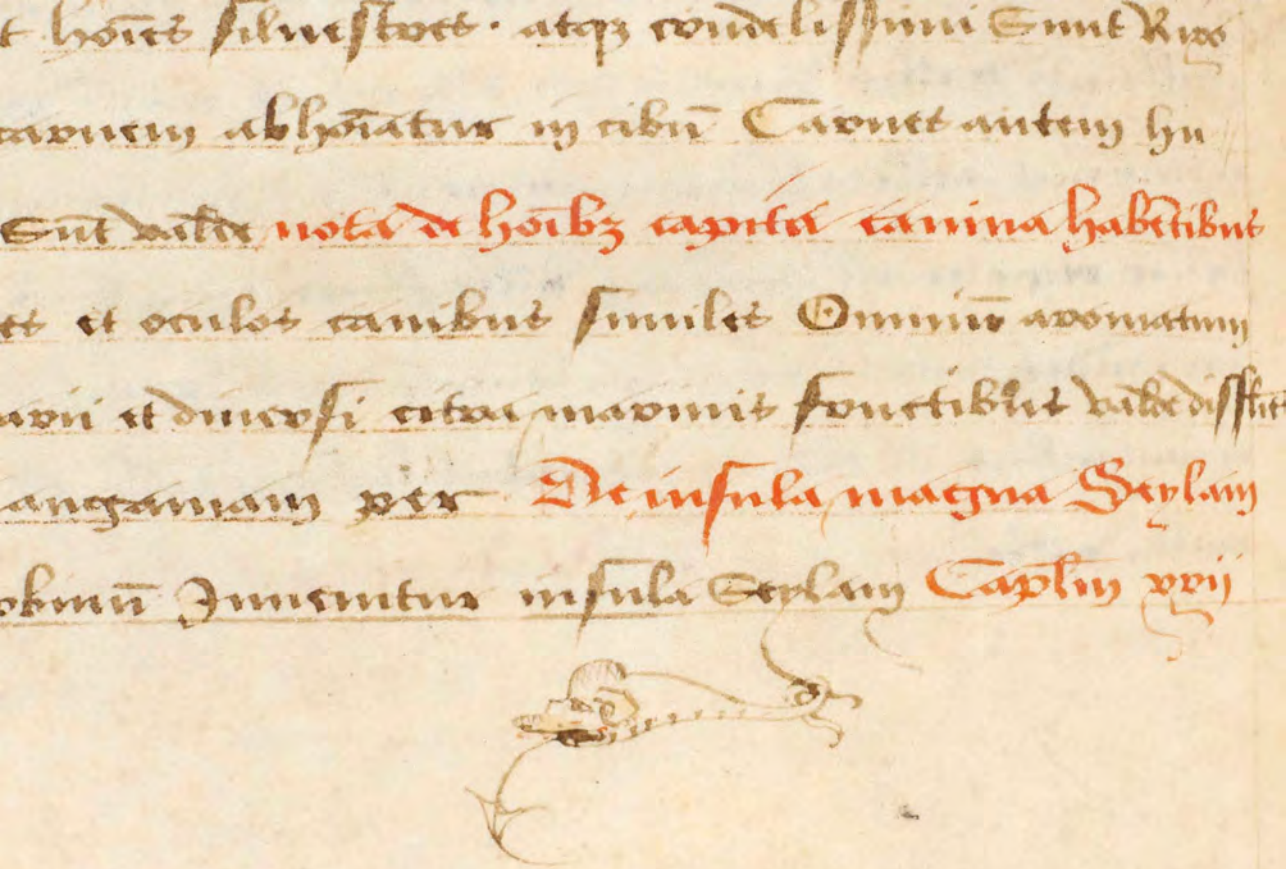 t hoīes siluestres · atqꝫ crudelissimi Sunt
carnem abhoīatur in cibū Carnes autem hu
Sūt valde nota de hoībꝫ capita canina habētibus
et oculos canibus similes Omniū aromatum
et diuersi citra marinis fructibus valde
per De insula magna Seylam
Inuenitur insula Seylam Caplm̄ xvij